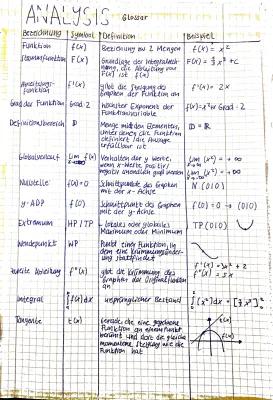 ANALYSIS Glossar
Bezeichnung Symbol Definition Beispiel
Funktion f(x) Beziehung zu 2 Mengen f(x) = x²
Stammfunktion F(x) Grundlage der Integralrech-
nung, die Ableitung von
F(x) ist f(x)
F(x) = ⅓x³ + c
Ableitungs-
funktion
f'(x) gibt die Steigung des
Graphen der Funktion an
f'(x) = 2x
Grad der Funktion Grad 2 Höchster Exponent der
Funktionsvariable
f(x)=x² Grad 2
Definitionsbereich D Menge mit den Elementen,
unter denen die Funktion
definiert
erfüllbar ist
D = ℝ
Globalverlauf lim f(x) Verhalten der y werte,
wenn x-Werte positiv/
negativ unendlich groß werden
lim (x²) = +∞
lim (x²) = +∞
Nullstelle f(x)=0 Schnittpunkte des Graphen
mit der x-Achse
N (0|0)
y-ADP f(0) Schnittpunkte des Graphen
mit der y-Achse
f(0) = 0 → (0|0)
Extremum HP / TP lokales oder globales
Maximum oder Minimum
TP (0|0)
Wendepunkt WP Punkt einer Funktion, in
dem eine Krümmungsänderung
stattfindet
zweite Ableitung f"(x) gibt die Krümmung des
Graphen der
an
Integral f(x)dx ursprünglicher Bestand
Tangente t(x) Gerade, die eine gegebene
Funktion an einem Punkt
berührt und dort die gleiche
momentane Steigung wie die
Funktion hat
t(x)
f(x)